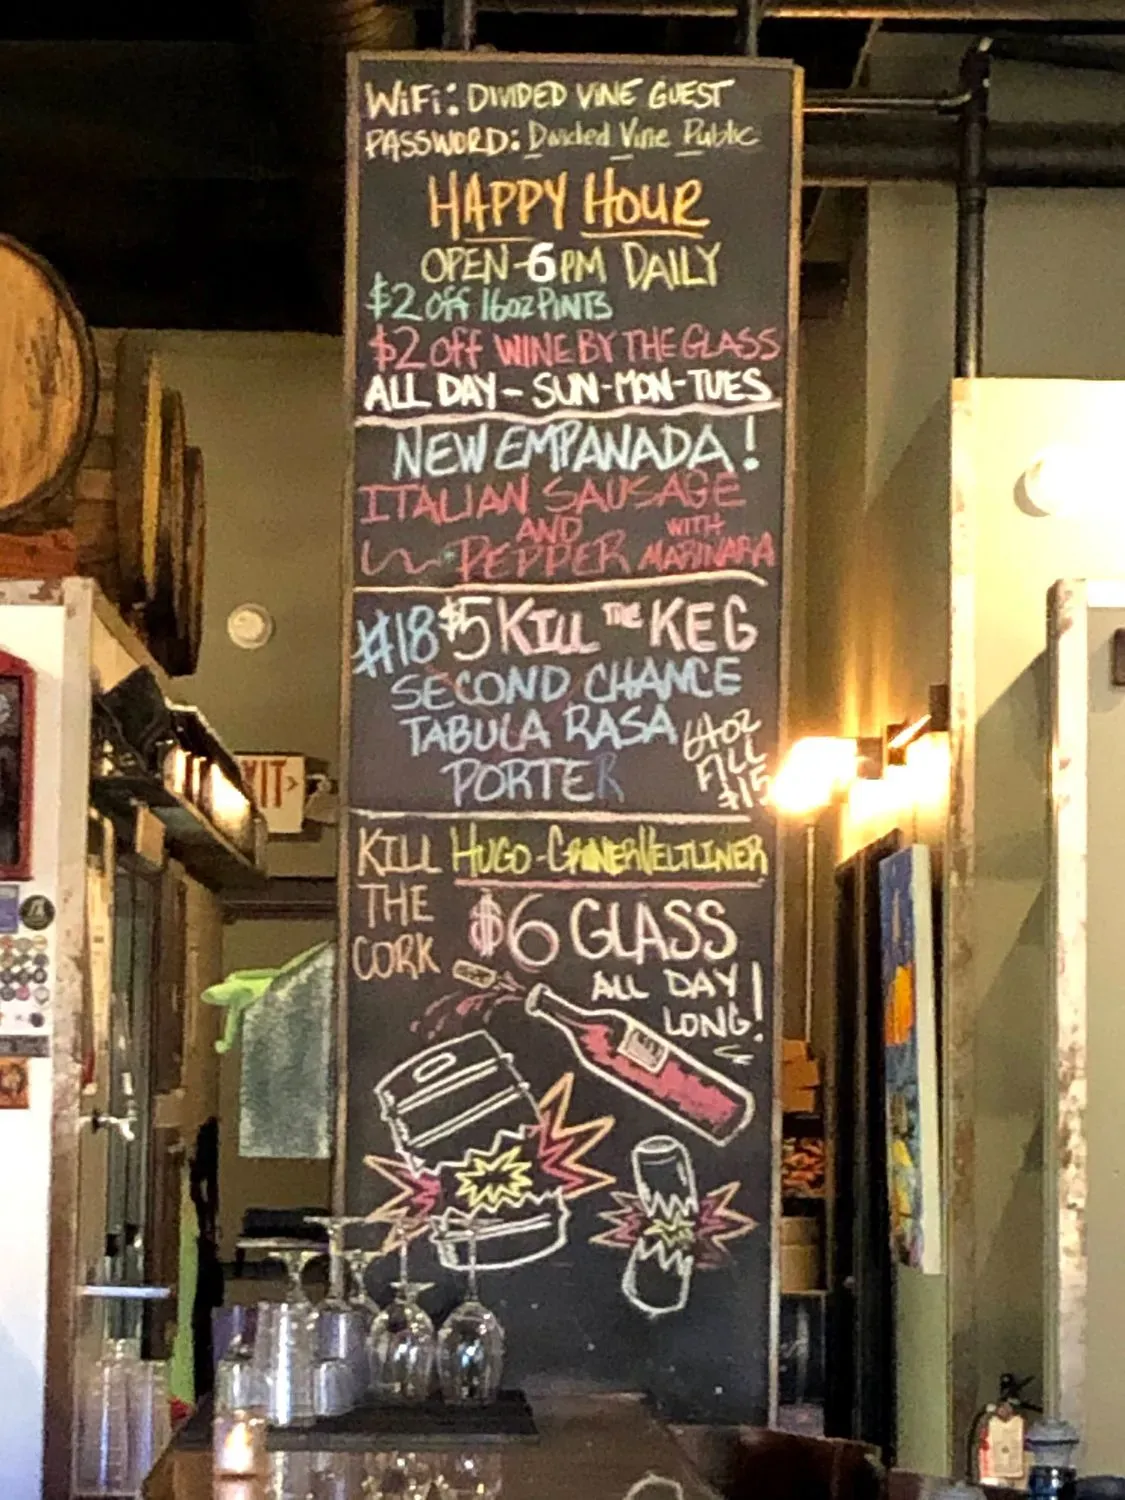 WiFi: DIVIDED VINE GUEST
PASSWORD: Divided Vine Public
HAPPY HOUR
OPEN-6PM DAILY
$2 off 16oz PINTS
$2 off WINE BY THE GLASS
ALL DAY - SUN-MON-TUES
NEW EMPANADA!
ITALIAN SAUSAGE
AND
PEPPER WITH MARINARA
#18 $5 KILL THE KEG
SECOND CHANCE
TABULA RASA
PORTER
64oz
FILL
$15
KILL
THE
CORK
HUGO - GRÜNERVELTLINER
$6 GLASS
ALL DAY
LONG!
EXIT